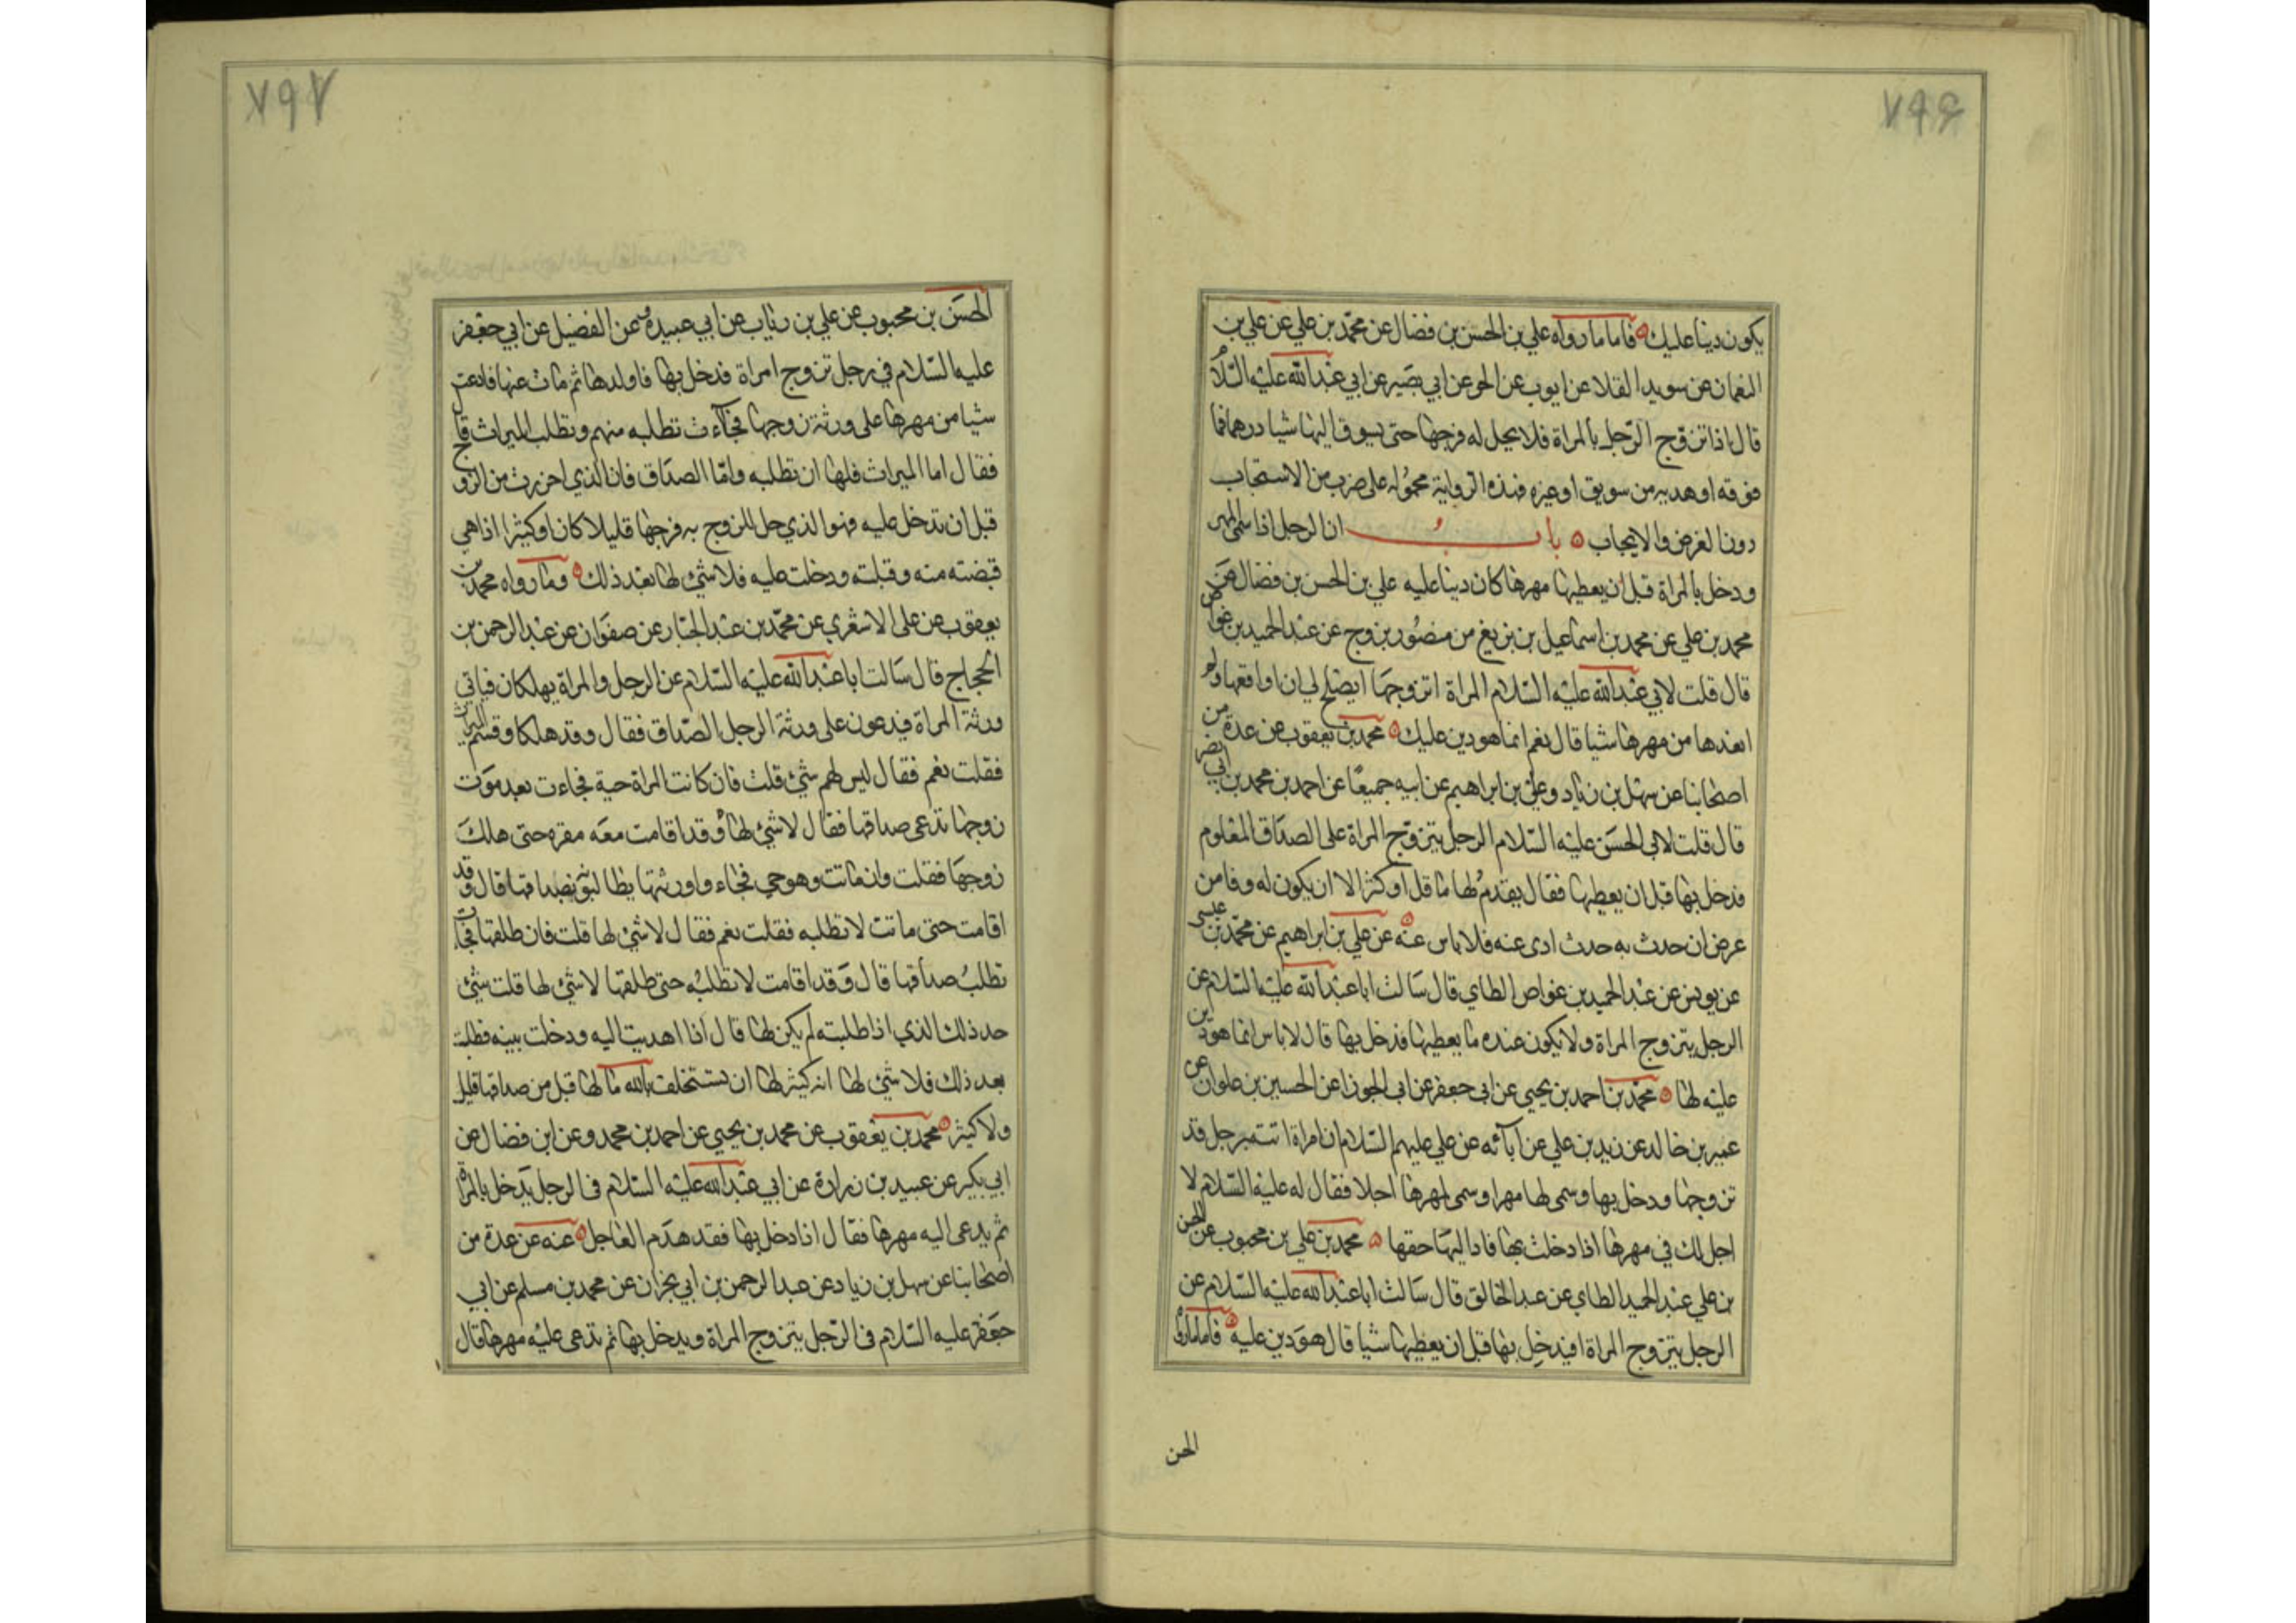 ٧٩٦
يكون دينا عليك فاما ما رواه علي بن الحسن بن فضال عن محمد بن علي عن علي بن
النعمان عن سويد القلا عن ايوب عن الحر عن ابي بصير عن ابي عبد الله عليه السلام
قال اذا تزوج الرجل بالمراة فلا يحل له فرجها حتى يسوق اليها شيا درهما فما
فوقه او هدية من سويق او غيره فهذه الرواية محمولة على ضرب من الاستحباب
دون الفرض والايجاب باب ان الرجل اذا سمى المهر
ودخل بالمراة قبل ان يعطيها مهرها كان دينا عليه علي بن الحسن بن فضال عن
محمد بن علي عن محمد بن اسماعيل بن بزيغ من منصور بزوج عن عبد الحميد بن غواض
قال قلت لابي عبد الله عليه السلام المراة اتزوجها ايصلح لي ان اواقعها ولم
انقدها من مهرها شيا قال نعم انما هو دين عليك محمد بن يعقوب عن عدة من
اصحابنا عن سهل بن زياد وعلي بن ابراهيم عن ابيه جميعا عن احمد بن محمد بن ابي نصر
قال قلت لابي الحسن عليه السلام الرجل يتزوج المراة على الصداق المعلوم
فدخل بها قبل ان يعطيها فقال يقدم لها ما قل او كثر الا ان يكون له وفا من
عرض ان حدث به حدث ادى عنه فلا باس عنه عن علي بن ابراهيم عن محمد بن عيسى
عن يونس عن عبد الحميد بن غواص الطاي قال سالت ابا عبد الله عليه السلام عن
الرجل يتزوج المراة ولا يكون عنده ما يعطيها فدخل بها قال لا باس انما هو دين
عليه لها محمد بن احمد بن يحيى عن ابي جعفر عن ابي الجوزا عن الحسين بن علوان عن
عمير بن خالد عن زيد بن علي عن آبائه عن علي عليهم السلام ان امراة اتته برجل قد
تزوجها ودخل بها وسمى لها مهرا وسمى لمهرها اجلا فقال له عليه السلام لا
اجل لك في مهرها اذا دخلت بها فاد اليها حقها محمد بن علي بن محبوب عن الحسن
بن علي عبد الحميد الطاي عن عبد الخالق قال سالت ابا عبد الله عليه السلام عن
الرجل يتزوج المراة فيدخل بها قبل ان يعطيها شيا قال هو دين عليه فاما ما رواه
الحسن
٧٩٧
الحسن بن محبوب عن علي بن رئاب عن ابي عبيدة وعن الفضيل عن ابي جعفر
عليه السلام في رجل تزوج امراة فدخل بها فاولدها ثم مات عنها فادعت
شيا من مهرها على ورثة زوجها فجآءت تطلبه منهم وتطلب الميراث قال
فقال اما الميراث فلها ان تطلبه واما الصداق فان الذي اخذت من الزوج
قبل ان تدخل عليه فهو الذي حل للزوج به فرجها قليلا كان او كثيرا اذا هي
قبضته منه وقبلته ودخلت عليه فلا شئ لها بعد ذلك وما رواه محمد بن
يعقوب عن علي الاشعري عن محمد بن عبد الجبار عن صفوان عن عبد الرحمن بن
الحجاج قال سالت ابا عبد الله عليه السلام عن الرجل والمراة يهلكان فياتي
ورثة المراة فيدعون على ورثة الرجل الصداق فقال وقد هلكا وقسم الميراث
فقلت نعم فقال ليس لهم شئ قلت فان كانت المراة حية فجاءت بعد موت
زوجها تدعي صداقها فقال لا شئ لها وقد اقامت معه مقره حتى هلك
زوجها فقلت وان ماتت وهو حي فجاء واورثتها يطالبونه بصداقها قال وقد
اقامت حتى ماتت لا تطلبه فقلت نعم فقال لا شئ لها قلت فان طلقها فجاءت
تطلب صداقها قال وقد اقامت لا تطلبه حتى طلقها لا شئ لها قلت شئ
حد ذلك الذي اذا طلبته لم يكن لها قال اذا اهديت اليه ودخلت بيته فطلبت
بعد ذلك فلا شئ لها انه كثير لها ان يستخلف بالله ما لها قبل من صداقها قليل
ولا كثير محمد بن يعقوب عن محمد بن يحيى عن احمد بن محمد وعن ابن فضال عن
ابي بكير عن عبيد بن زرارة عن ابي عبد الله عليه السلام في الرجل يدخل بالمراة
ثم يدعى اليه مهرها فقال اذا دخل بها فقد هدم العاجل عنه عن عدة من
اصحابنا عن سهل بن زياد عن عبد الرحمن بن ابي نجران عن محمد بن مسلم عن ابي
جعفر عليه السلام في الرجل يتزوج المراة ويدخل بها ثم تدعي عليه مهرها قال